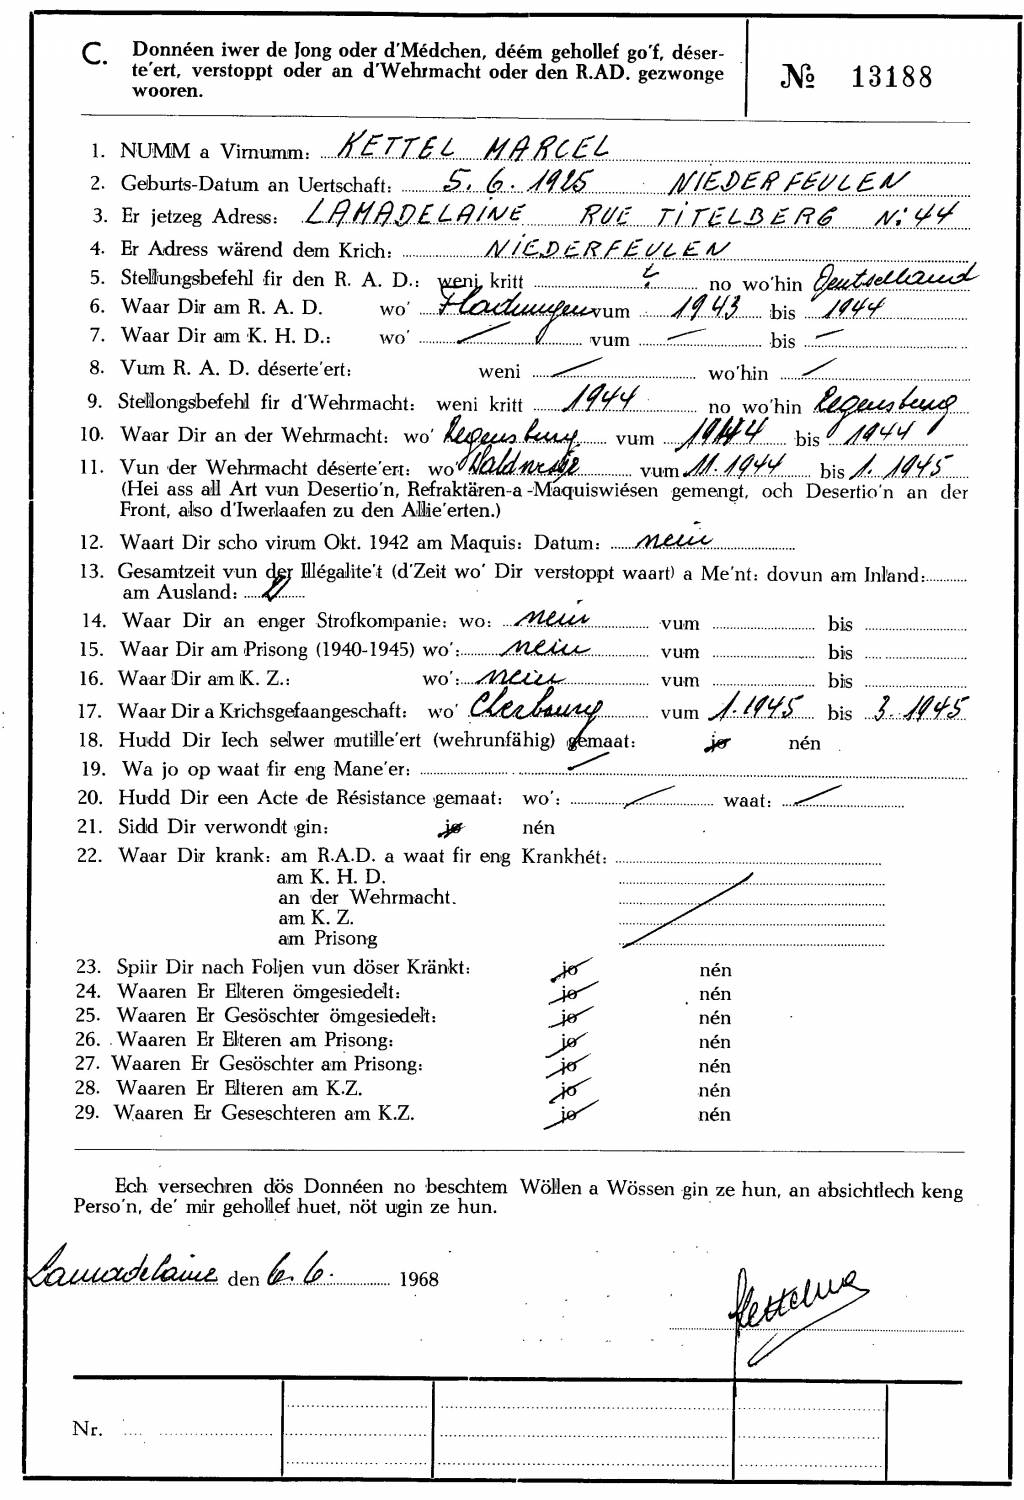 C. Donnéen iwer de Jong oder d'Médchen, déém gehollef go'f, déser-
te'ert, verstoppt oder an d'Wehrmacht oder den R.AD. gezwonge
wooren.
№ 13188
1. NUMM a Virnumm: KETTEL MARCEL
2. Geburts-Datum an Uertschaft: 5.6.1925 NIEDERFEULEN
3. Er jetzeg Adress: LAMADELAINE RUE TITELBERG N: 44
4. Er Adress wärend dem Krich: NIEDERFEULEN
5. Stellungsbefehl fir den R. A. D.: weni kritt ? no wo'hin Deutschland
6. Waar Dir am R. A. D. wo' Fladungen vum 1943 bis 1944
7. Waar Dir am K. H. D.: wo' / vum / bis /
8. Vum R. A. D. déserte'ert: weni / wo'hin /
9. Stellongsbefehl fir d'Wehrmacht: weni kritt 1944 no wo'hin Regensburg
10. Waar Dir an der Wehrmacht: wo' Regensburg vum 1944 bis 1944
11. Vun der Wehrmacht déserte'ert: wo' vum 11.1944 bis 1.1945
(Hei ass all Art vun Desertio'n, Refraktären-a-Maquiswiésen gemengt, och Desertio'n an der
Front, also d'Iwerlaafen zu den Allie'erten.)
12. Waart Dir scho virum Okt. 1942 am Maquis: Datum: nein
13. Gesamtzeit vun der Illégalite't (d'Zeit wo' Dir verstoppt waart) a Me'nt: dovun am Inland:
am Ausland: 2
14. Waar Dir an enger Strofkompanie: wo: nein vum bis
15. Waar Dir am Prisong (1940-1945) wo': nein vum bis
16. Waar Dir am K. Z.: wo': nein vum bis
17. Waar Dir a Krichsgefaangeschaft: wo' Cherbourg vum 1.1945 bis 3.1945
18. Hudd Dir Iech selwer mutille'ert (wehrunfähig) gemaat: jo nén
19. Wa jo op waat fir eng Mane'er: /
20. Hudd Dir een Acte de Résistance gemaat: wo': / waat: /
21. Sidd Dir verwondt gin: jo nén
22. Waar Dir krank: am R.A.D. a waat fir eng Krankhét:
am K. H. D.
an der Wehrmacht.
am K. Z.
am Prisong
23. Spiir Dir nach Foljen vun döser Kränkt: jo nén
24. Waaren Er Elteren ömgesiedelt: jo nén
25. Waaren Er Gesöschter ömgesiedelt: jo nén
26. Waaren Er Elteren am Prisong: jo nén
27. Waaren Er Gesöschter am Prisong: jo nén
28. Waaren Er Elteren am K.Z. jo nén
29. Waaren Er Geseschteren am K.Z. jo nén
Ech versechren dös Donnéen no beschtem Wöllen a Wössen gin ze hun, an absichtlech keng
Perso'n, de' mir gehollef huet, nöt ugin ze hun.
Lamadelaine den 6.6. 1968
Nr.